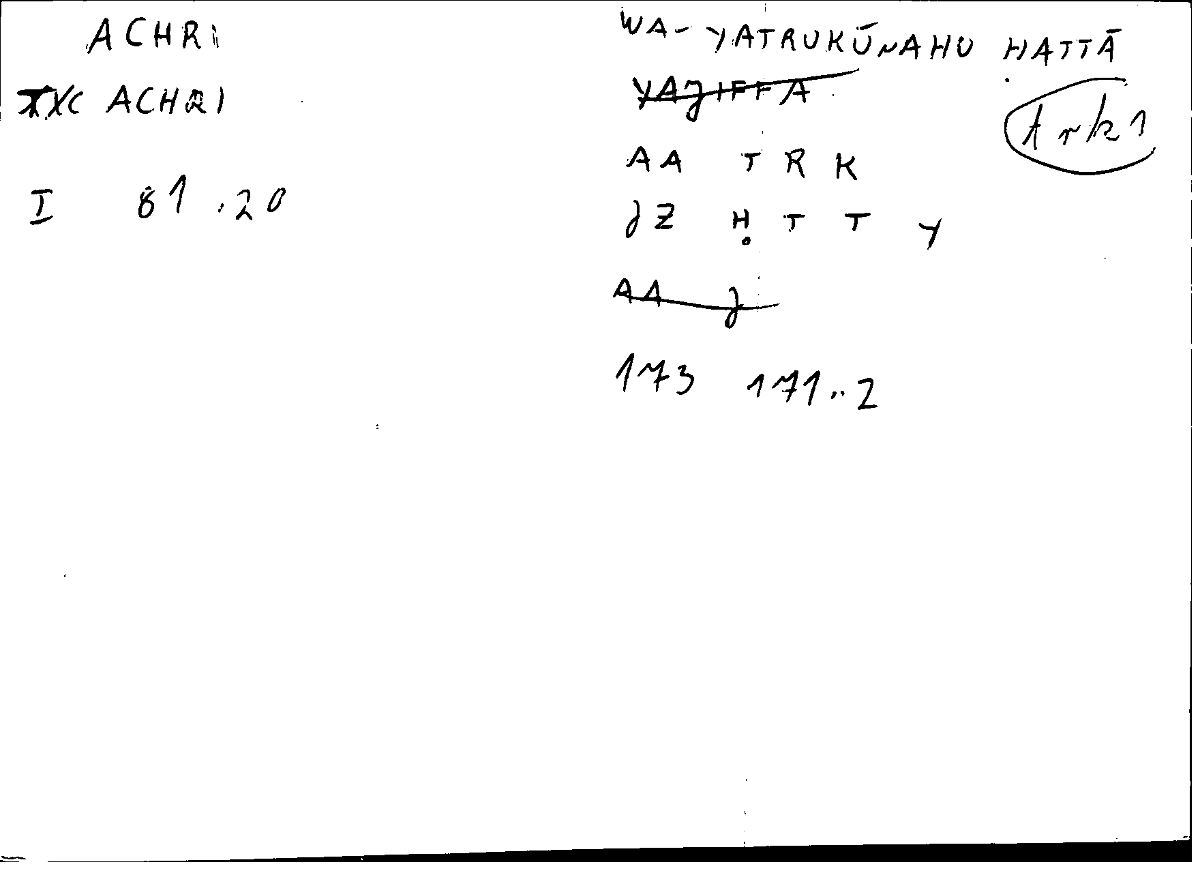 ACHRI
XXC ACHRI
I 81.20
WA-YATRUKŪNAHU ḤATTĀ
YAJIFFA
trk1
AA TRK
JZ ḤTTY
AA J
173 171..2